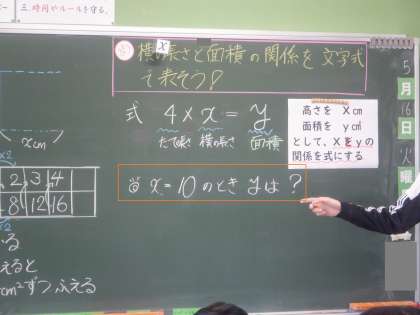 三、時間やルールを守る。
横の長さと面積の関係を文字式
で表そう！
式 4×x=y
たて長さ 横の長さ 面積
高さを Xcm
面積を ycm
として、Xとyの
関係を式にする
x=10のとき yは？
xcm
×2
2 3 4
8 12 16
×2
える
えると
cm²ずつふえる
5
月
16
日
火
曜